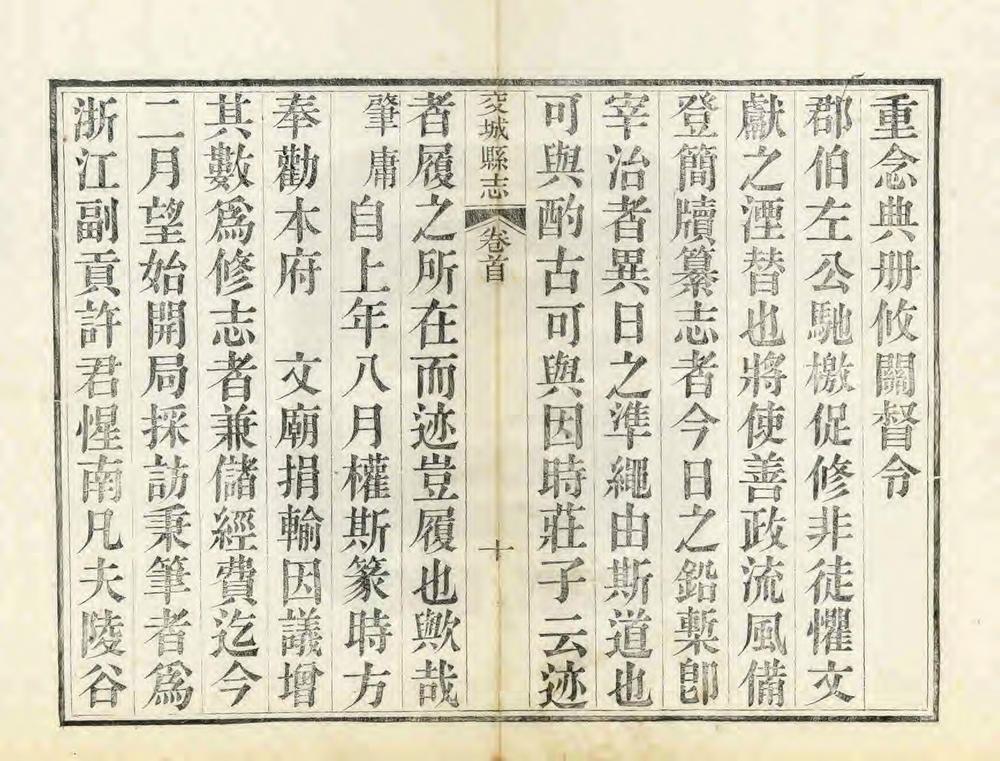 重念典册攸關督令
郡伯左公馳檄促修非徒懼文
獻之湮替也將使善政流風備
登簡牘纂志者今日之鉛槧卽
宰治者異日之準繩由斯道也
可與酌古可與因時莊子云迹
交城縣志 卷首 十
者履之所在而迹豈履也歟哉
肇庸自上年八月權斯篆時方
奉勸本府 文廟捐輸因議增
其數爲修志者兼儲經費迄今
二月望始開局採訪秉筆者爲
浙江副貢許君惺南凡夫陵谷